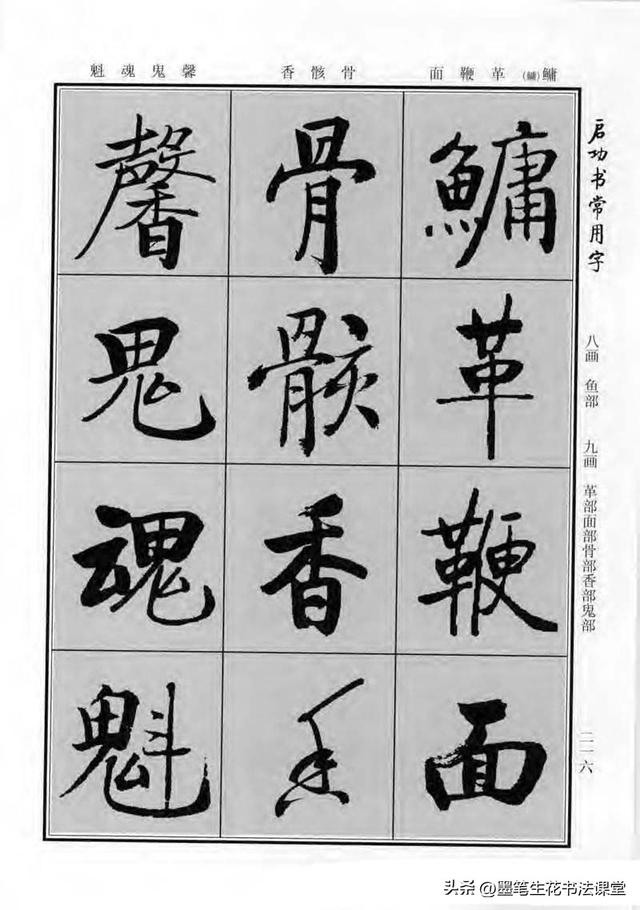 启功书常用字
八画 鱼部 九画 革部面部骨部香部鬼部
二一六
鳙(鱅)革鞭面
骨骸香
馨鬼魂魁
鱅革鞭面
骨骸香香
馨鬼魂魁
头条 @墨笔生花书法课堂